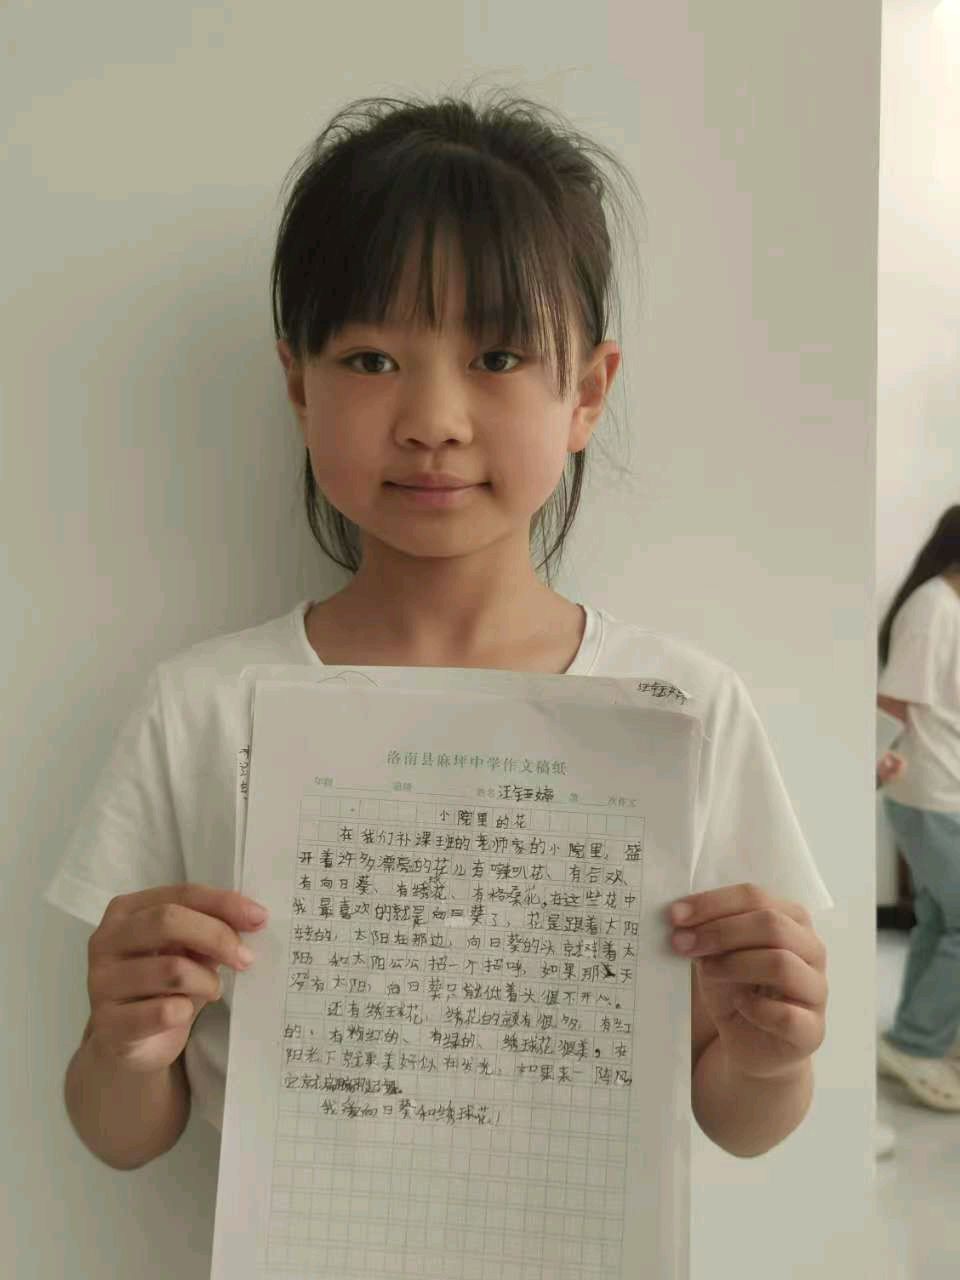 汪钰婷
洛南县麻坪中学作文稿纸
年级 班级 姓名 汪钰婷 第 次作文
小院里的花
在我们补课班的老师家的小院里，盛
开着许多漂亮的花儿有喇叭花、有后欢、
有向日葵、有绣花、有格桑花。在这些花中
我最喜欢的就是向日葵了，花是跟着太阳
转的，太阳在那边，向日葵的头就对着太
阳，和太阳公公招一个招呼，如果那天
没有太阳，向日葵只能低着头很不开心。
还有绣球花，绣花的颜有很多，有红
的、有粉红的、有绿的、绣球花很美。在
阳光下就更美好似在发光，如果来一阵风
它就
我爱向日葵和绣球花！